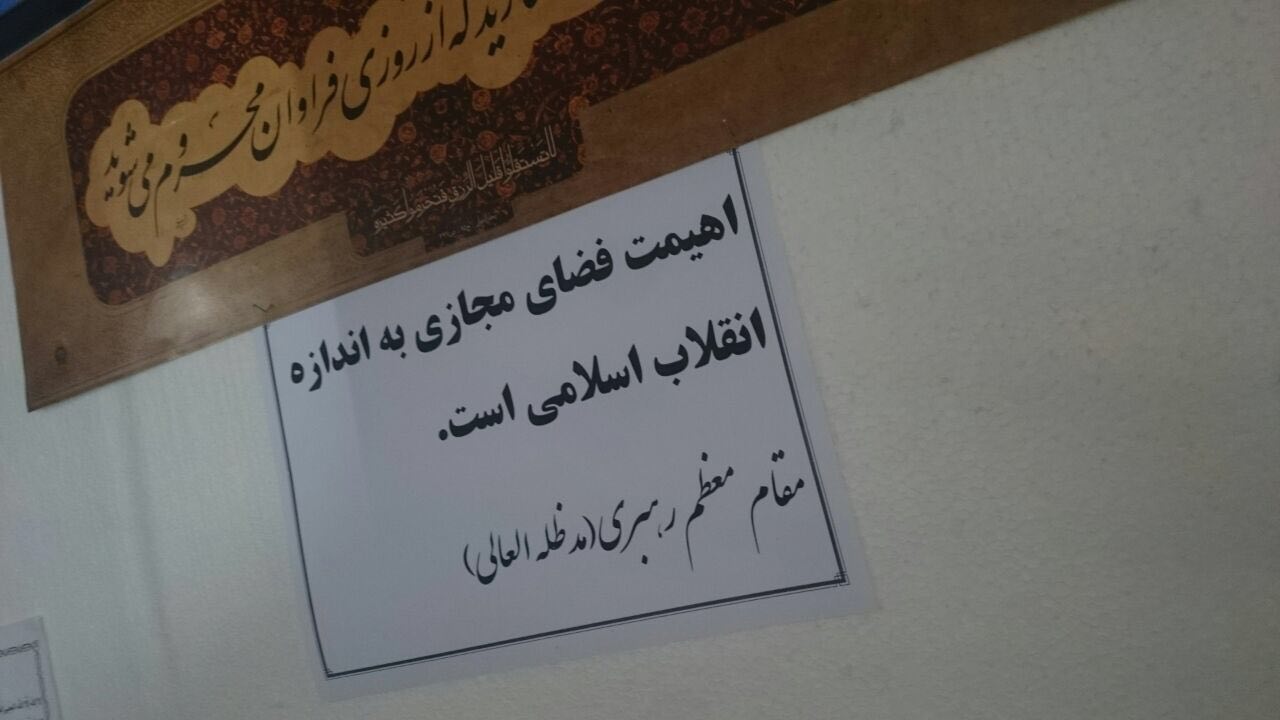 که از روزی فراوان محروم می‌شوید
لاتستقلوا قلیل الرزق فتحرموا کثیره
اهیمت فضای مجازی به اندازه
انقلاب اسلامی است.
مقام معظم رهبری(مدظله العالی)